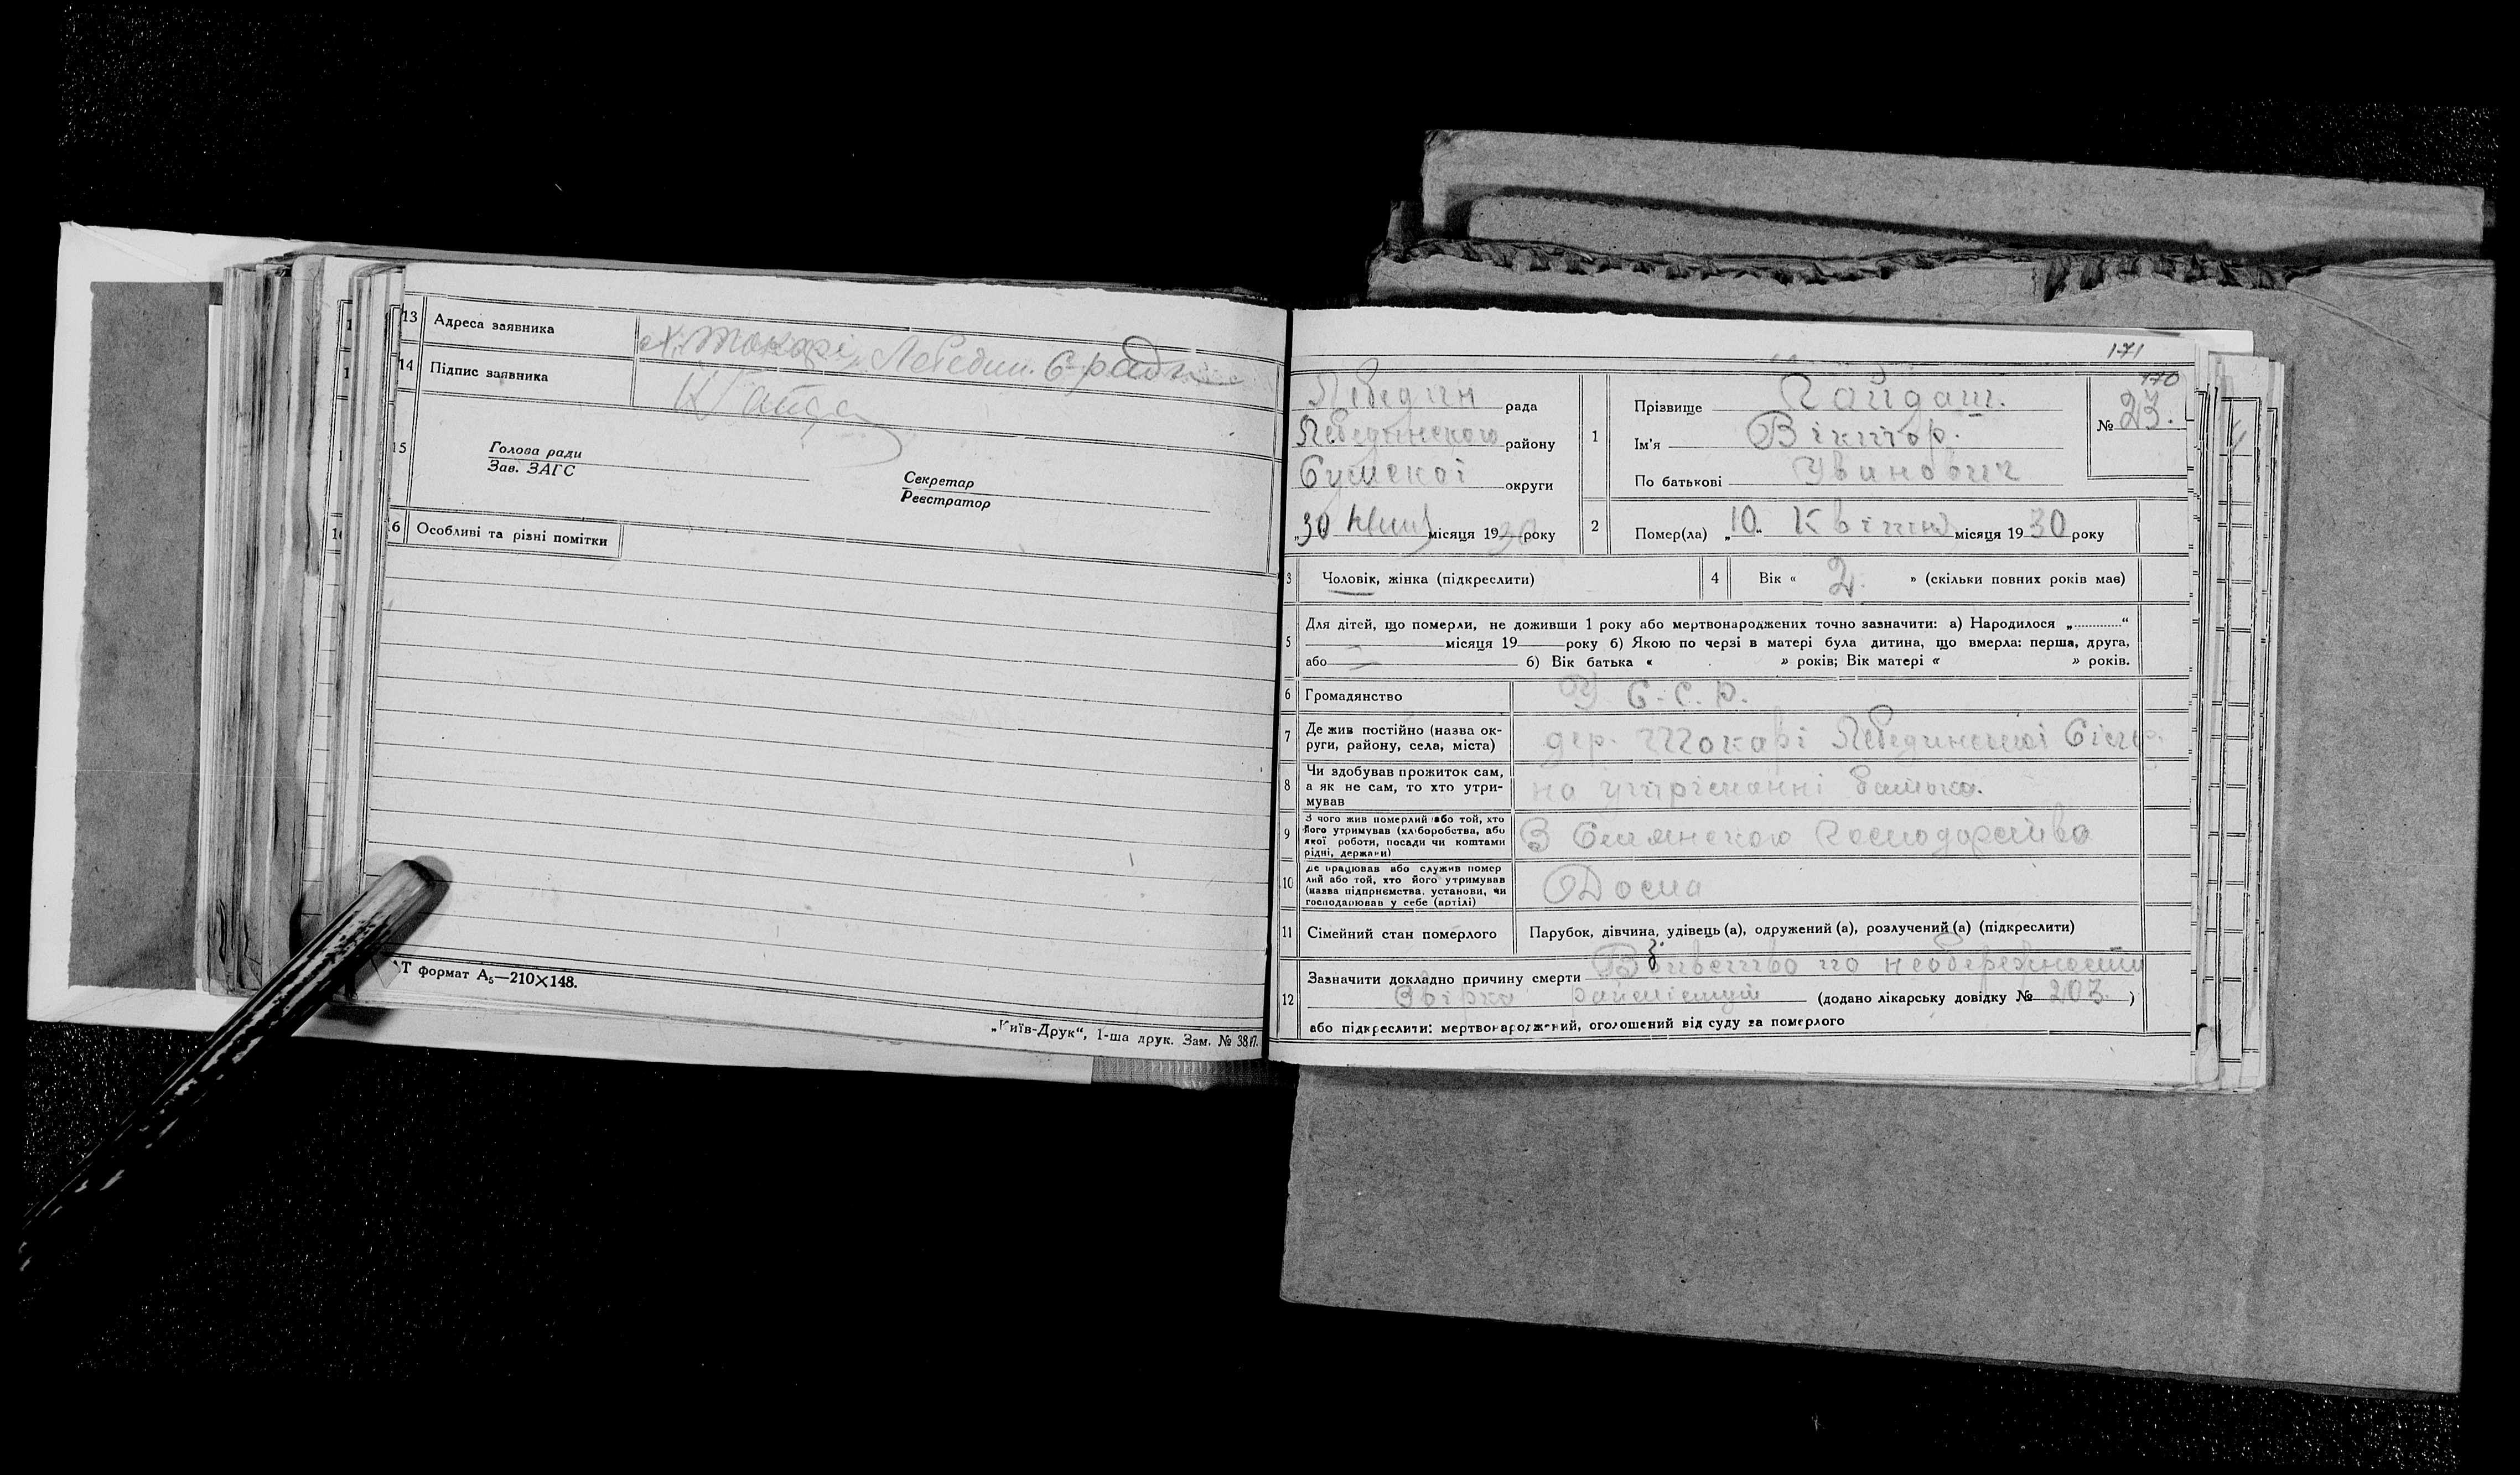 13 Адреса заявника х. Токарі, Лебедин. С-ради
14 Підпис заявника
15 Голова ради
Зав. ЗАГС
Секретар
Реєстратор
16 Особливі та різні помітки
АТ формат А₅—210✕148.
„Київ-Друк“, 1-ша друк. Зам. №
171
170
Лебедин рада
Лебединского району
Сумскої округи
„30 квит місяця 1930 року
1 Прізвище Гайдаш.
Ім'я Віктор.
По батькові Іванович
№ 23.
2 Помер(ла) „10„ Квітня місяця 1930 року
3 Чоловік, жінка (підкреслити)
4 Вік « 2. » (скільки повних років має)
5 Для дітей, що померли, не доживши 1 року або мертвонароджених точно зазначити: а) Народилося „............“
місяця 19 року б) Якою по черзі в матері була дитина, що вмерла: перша, друга,
або б) Вік батька « » років; Вік матері « » років.
6 Громадянство У С.С.Р.
7 Де жив постійно (назва ок-
руги, району, села, міста) дер. Токарі Лебединської
8 Чи здобував прожиток сам,
а як не сам, то хто утри-
мував на утріманні батька.
9 З чого жив померлий або той, хто
його утримував (хліборобства, або
якої роботи, посади чи коштами
рідні, держави) З Силянского господарства
10 Де працював або служив помер
лий або той, хто його утримував
(назва підприємства, установи, чи
господарював у себе (артілі) Дома
11 Сімейний стан померлого Парубок, дівчина, удівець (а), одружений (а), розлучений (а) (підкреслити)
12 Зазначити докладно причину смерти по необережности
(додано лікарську довідку № 203. )
або підкреслити: мертвонароджений, оголошений від суду за померлого